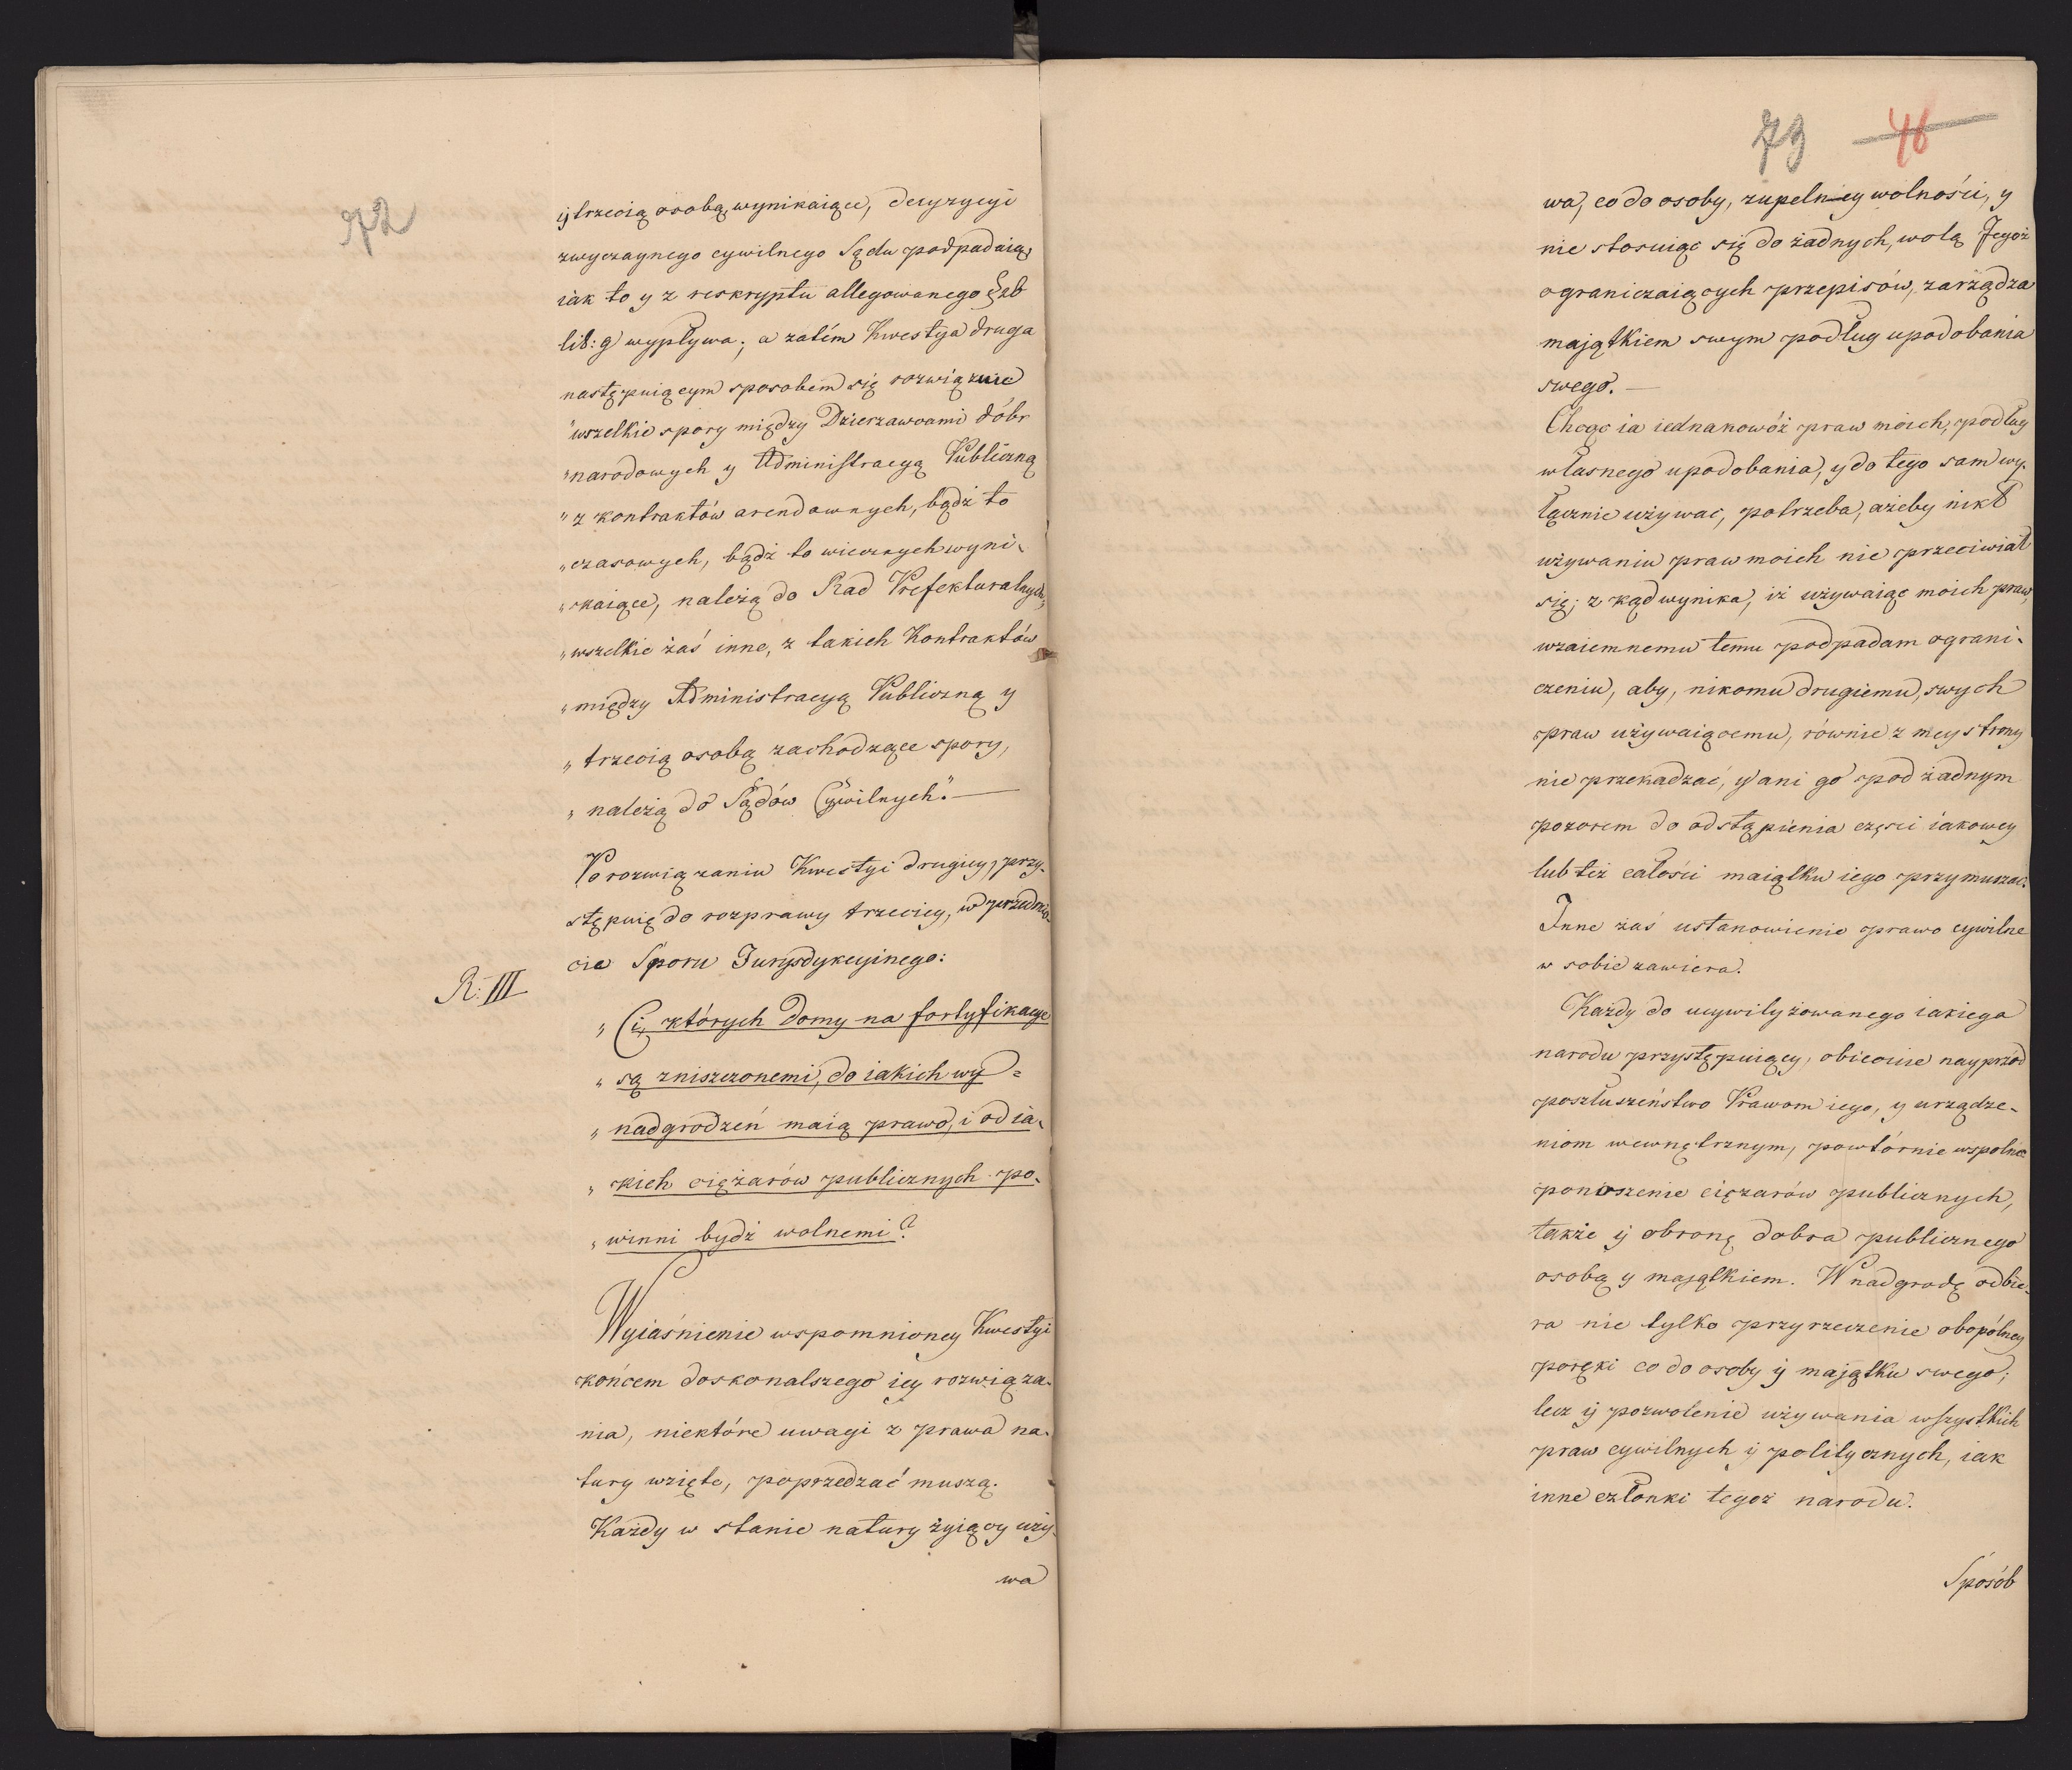 72
ÿ trzecią osobą wynikaiące, decyzycyi
zwyczaynego cywilnego Sądu podpadaią,
iak to y z reskryptu allegowanego § 26
lit: g wypływa; a zatém Kwestÿa druga
następuiącym sposobem się rozwiązuie
"wszelkie spory między Dzierzawcami dóbr
"narodowych y Administracyą Publiczną
"z kontraktów arendownych, bądź to
"czasowych, bądź to wiecznych wyni-
"kaiące, należą do Rad Prefekturalnych,
"wszelkie zaś inne, z takich Kontraktów
"między Administracyą Publiczną y
"trzecią osobą zachodzące spory,
"należą do Sądów Cÿwilnych". —
Po rozwiązaniu Kwestyi drugiey, przy-
stępuię do rozprawy trzeciey, w przedmio-
cie Sporu Jurysdykcyinego:
R: III
"Ci, których domy na fortyfikacye
"są zniszczonemi, do iakich wy=
"nadgrodzeń maią prawo, i od ia-
"kich ciężarów publicznych po-
"winni bydź wolnemi?
Wyiaśnienie wspomnioney Kwestyi
końcem doskonalszego iey rozwiąza-
nia, niektóre uwagi z prawa na-
tury wzięte, poprzedzać muszą.
Każdy w stanie natury żyiący uży-
wa
73 46
wa, co do osoby, zupelney wolności, y
nie stosuiąc się do żadnych, wolą Jegoż
ograniczaiących przepisów, zarządza
majątkiem swym podług upodobania
swego. —
Chcąc ia iednanowóż praw moich, podług
własnego upodobania, y do tego sam wy-
łącznie używać, potrzeba, ażeby nikt
używaniu praw moich nie przeciwiał
się; z kąd wynika, iż używaiąc moich praw,
wzaiemnemu temu podpadam ograni-
czeniu, aby, nikomu drugiemu, swych
praw używaiącemu, równie z mey strony
nie przekadzać, y ani go pod żadnym
pozorem do odstąpienia części iakowey
lub też całości maiątku iego przymuszać.
Inne zaś ustanowienie prawo cywilne
w sobie zawiera.
Każdy do ucywilyzowanego iakiego
narodu przystępuiący, obiecuie nayprzod
poszłuszeństwo Prawom iego, y urządze-
niom wewnętrznym, powtórnie wspolne
ponoszenie ciężarów publicznych,
także ÿ obronę dobra publicznego
osobą y majątkiem. W nadgrodę odbie-
ra nie tylko przyrzeczenie obopólney
poręki co do osoby ÿ majątku swego;
lecz ÿ pozwolenie używania wszystkich
praw cywilnych ÿ politycznych, iak
inne członki tegoż narodu.
Sposób